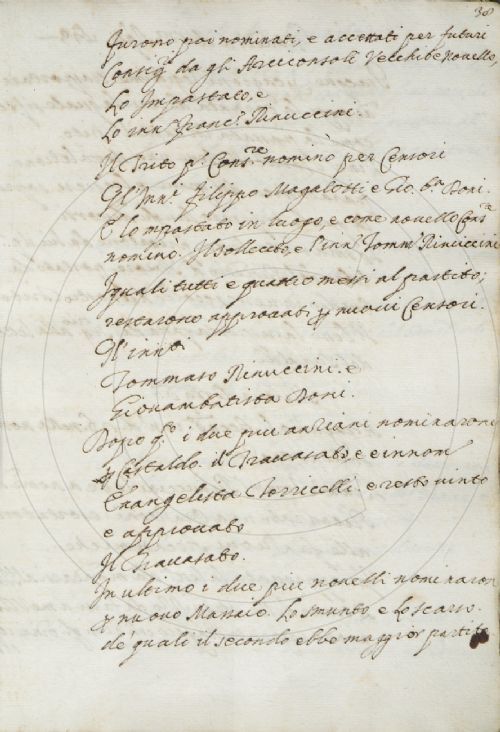 38
Furono poi nominati, e accettati per futuri
Consig.ri da gli Arciconsoli Vecchi e Novello,
Lo Impastato, e
Lo Inn.o Franc.o Rinuccini.
Il Trito p.o Cons.re nominò per Censori
Gl'Inn.i Filippo Magalotti, e Gio. b.a Doni.
E lo mpastato in luogo, e come novello Cons.re
nominò. Il Sollecito, e l'inn.o Tomm.o Rinuccini
I quali tutti e quattro messi al partito;
restarono approvati p nuovi Censori.
Gl'inn.i
Tommaso Rinuccini. e
Giovambatista Doni.
Dopo q.o i due più anziani nominarono
p Castaldo. il Travasato, e e innom
Evangelista Torricelli. e restò vinto
e approvato
Il Travasato.
In ultimo i due più novelli nominaron
p nuovo Massaio. Lo Smunto, e Lo Scarso.
de' quali il secondo ebbe maggior partito